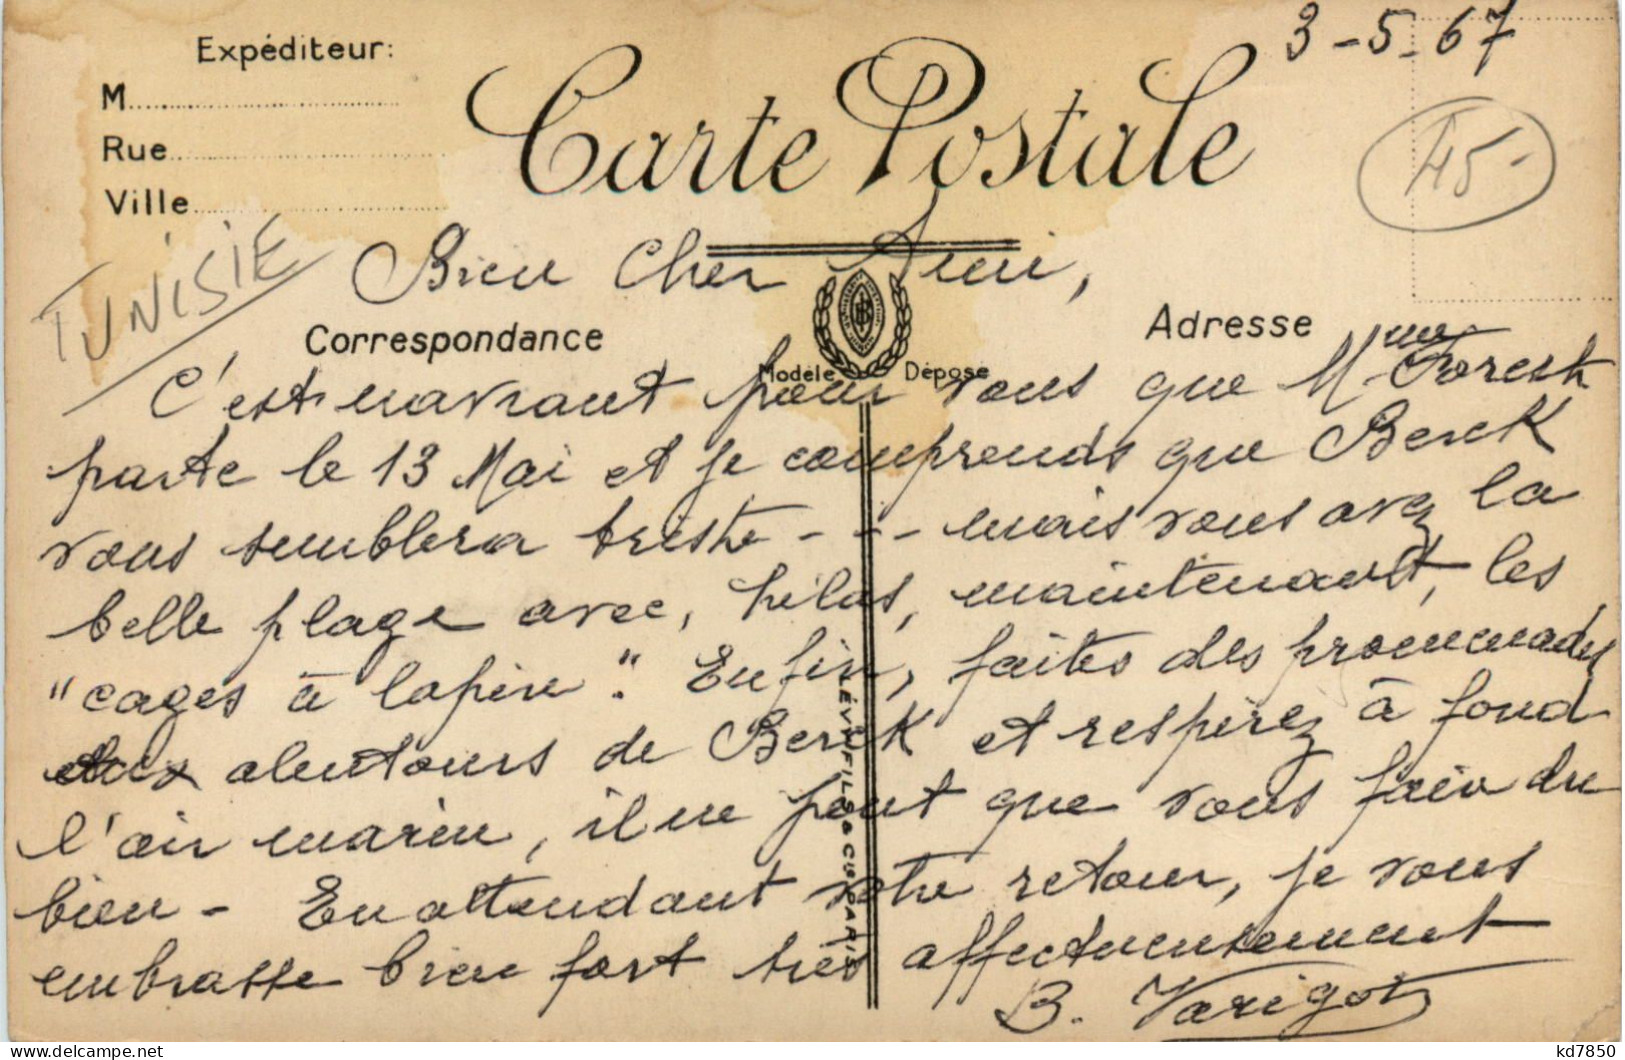 3-5-67
Expéditeur:
M
Rue
Ville
Carte Postale
45-
TUNISIE
Bien Cher Ami,
Correspondance
Modèle Déposé
Adresse
C'est navrant pour vous que Mme Forest
parte le 13 Mai et je comprends que Berck
vous semblera triste - - - mais vous avez la
belle plage avec, hélas, maintenant, les
"cages à lapin". Enfin, faites des promenades
aux alentours de Berck et respirez à fond
l'air marin, il ne peut que vous faire du
bien - En attendant votre retour, je vous
embrasse bien fort très affectueusement
B. Varigot
LÉVY FILS & CIE PARIS
kd7850